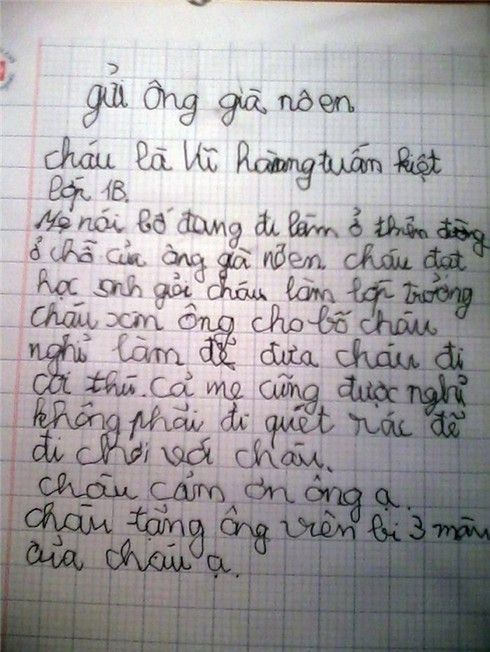 gửi ông già nôen
cháu là Vĩ hoàng tuấn kiệt
lớp 1B.
Mẹ nói bố đang đi làm ở thiên đường
ở chỗ của ông già nôen. cháu đạt
học sinh giỏi cháu làm lớp trưởng
cháu xin ông cho bố cháu
nghỉ làm để đưa cháu đi
coi thú. cả mẹ cũng được nghỉ
không phải đi quét rác để
đi chơi với cháu.
cháu cảm ơn ông ạ.
cháu tặng ông viên bi 3 màu
của cháu ạ.